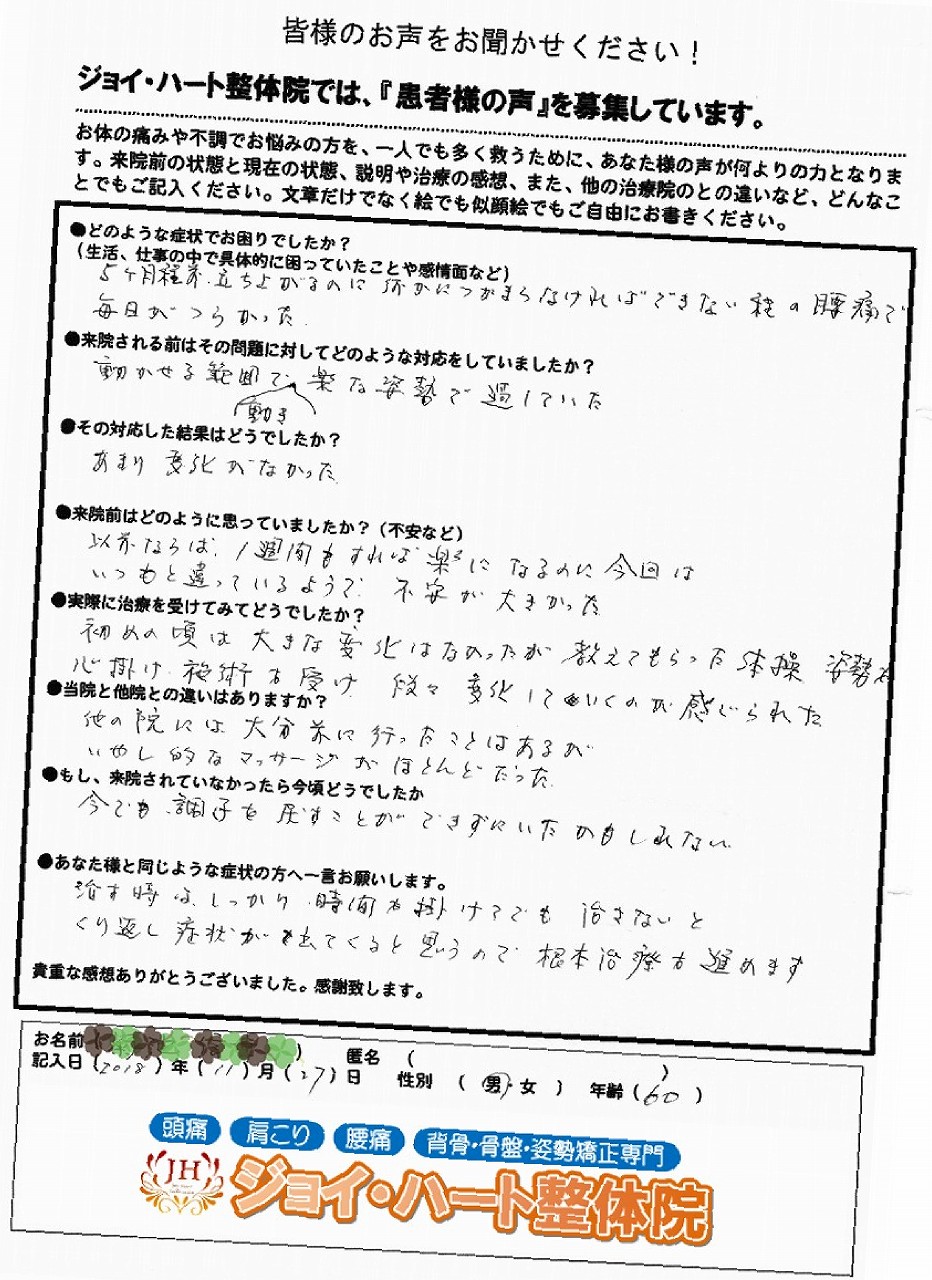 皆様のお声をお聞かせください！
ジョイ・ハート整体院では、『患者様の声』を募集しています。
お体の痛みや不調でお悩みの方を、一人でも多く救うために、あなた様の声が何よりの力となりま
す。来院前の状態と現在の状態、説明や治療の感想、また、他の治療院のとの違いなど、どんなこ
とでもご記入ください。文章だけでなく絵でも似顔絵でもご自由にお書きください。
●どのような症状でお困りでしたか？
（生活、仕事の中で具体的に困っていたことや感情面など）
5ヶ月程前、立ち上がるのに何かにつかまらなければできない程の腰痛で
毎日がつらかった。
●来院される前はその問題に対してどのような対応をしていましたか？
動かせる範囲で、楽な姿勢で過していた
動き
●その対応した結果はどうでしたか？
あまり変化がなかった。
●来院前はどのように思っていましたか？（不安など）
以前ならば、1週間もすれば楽になるのに今回は
いつもと違っているようで、不安が大きかった
●実際に治療を受けてみてどうでしたか？
初めの頃は大きな変化はなかったが教えてもらった体操、姿勢を
心掛け、施術を受け、段々変化していくのが感じられた
●当院と他院との違いはありますか？
他の院には大分前に行ったことはあるが
いやし的なマッサージがほとんどだった。
●もし、来院されていなかったら今頃どうでしたか
今でも調子を戻すことができずにいたかもしれない
●あなた様と同じような症状の方へ一言お願いします。
治す時は、しっかり時間を掛けてでも治さないと
くり返し症状が出てくると思うので根本治療を進めます
貴重な感想ありがとうございました。感謝致します。
お名前（ ） 匿名（ ）
記入日（2018）年（11）月（27）日 性別（男・女） 年齢（60）
頭痛 肩こり 腰痛 背骨・骨盤・姿勢矯正専門
JH ジョイ・ハート整体院